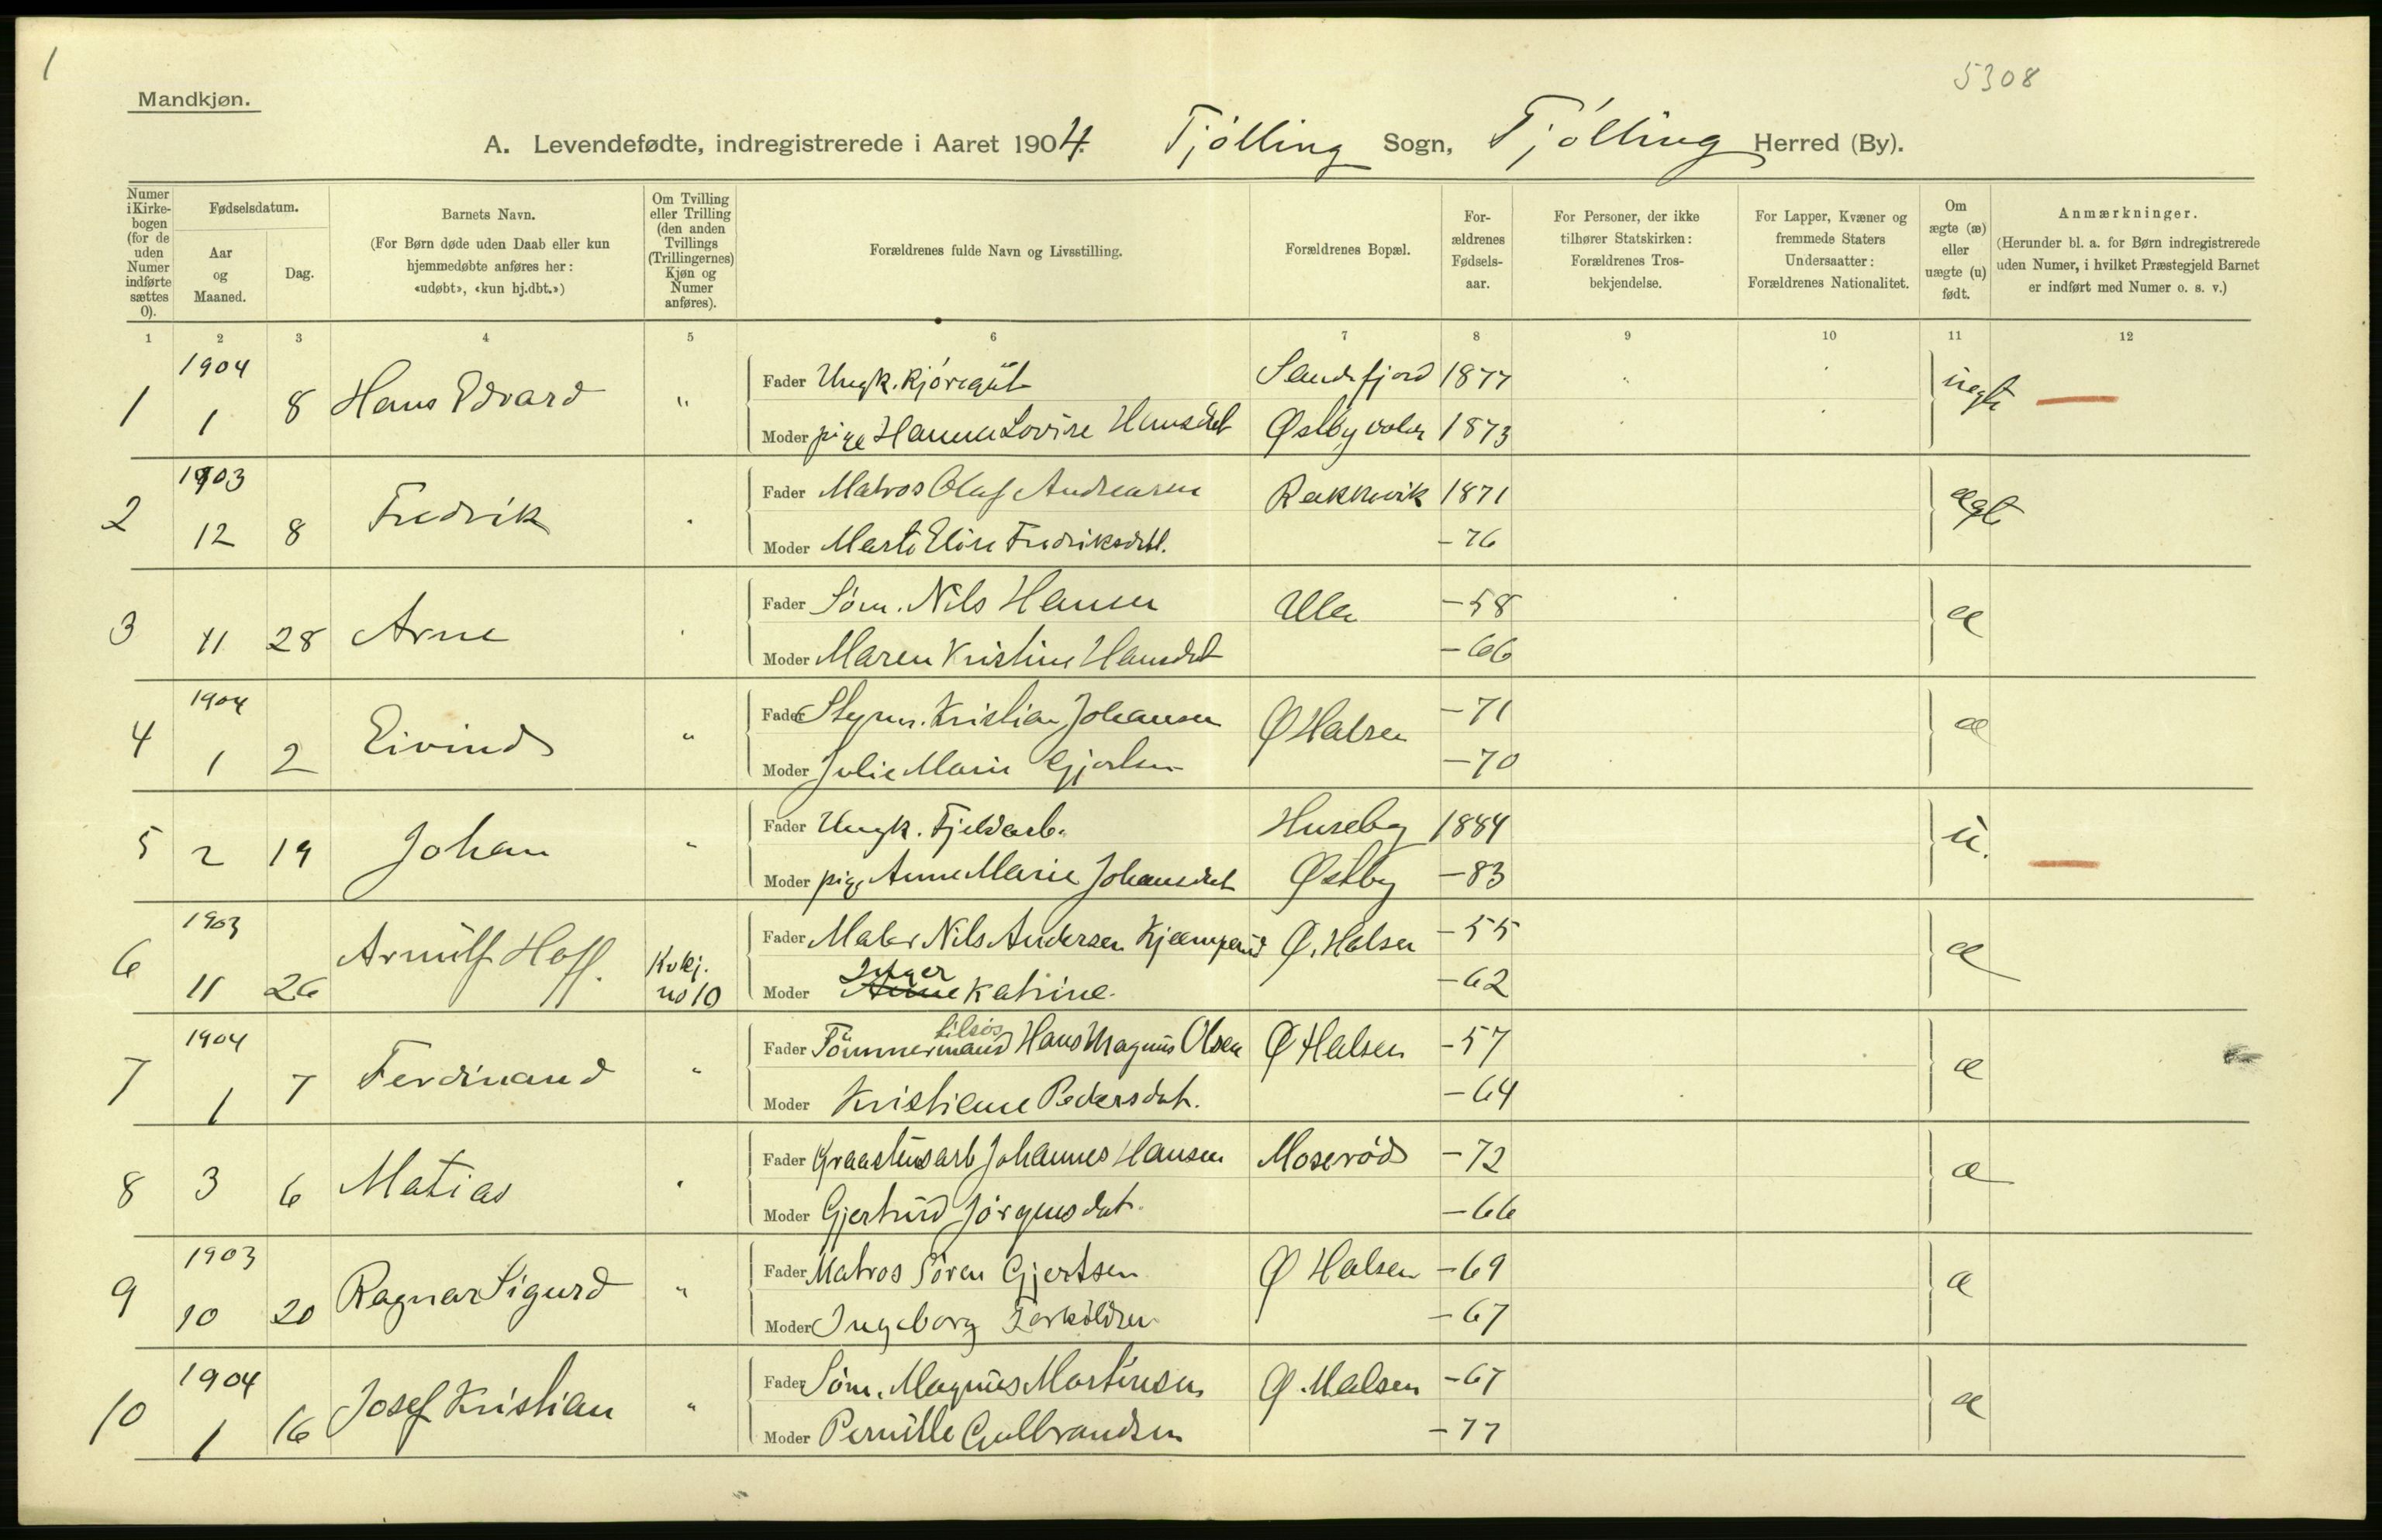 1
5308
Mandkjøn.
A. Levendefødte, indregistrerede i Aaret 1904. Tjölling Sogn, Tjölling Herred (By).
Numer i Kirkebogen (for de uden Numer indførte sættes 0).
Fødselsdatum.
Aar og Maaned.
Dag.
Barnets Navn.
(For Børn døde uden Daab eller kun hjemmedøbte anføres her: «udøbt», «kun hj.dbt.»)
Om Tvilling eller Trilling (den anden Tvillings (Trillingernes) Kjøn og Numer anføres).
Forældrenes fulde Navn og Livsstilling.
Forældrenes Bopæl.
Forældrenes Fødselsaar.
For Personer, der ikke tilhører Statskirken: Forældrenes Trosbekjendelse.
For Lapper, Kvæner og fremmede Staters Undersaatter: Forældrenes Nationalitet.
Om ægte (æ) eller uægte (u) født.
Anmærkninger.
(Herunder bl. a. for Børn indregistrerede uden Numer, i hvilket Præstegjeld Barnet er indført med Numer o. s. v.)
1 2 3 4 5 6 7 8 9 10 11 12
1904
1 1 8 Hans Edvard " Fader Ungk. Kjöregut Sandefjord 1877 uegte
Moder pige Hanna Lovise Hansdat Østby 1873
1903
2 12 8 Fredrik Fader Matros Olaf Andreasen Rekkevik 1871 ægte
Moder Marte Elise Fredriksdtl. -76
3 11 28 Arne Fader Söm. Nils Hansen Ula -58 æ
Moder Maren Kristine Hansdat -66
1904
4 1 2 Eivind " Fader Styrm. Kristian Johansen Ø Halsen -71 æ
Moder Julie Marie -70
5 2 19 Johan " Fader Ungk. Fjeldarb. Huseby 1884 u.
Moder pige Anne Marie Johansdat Østby -83
1903
6 11 26 Arnulf Hoff. Kvkj. no 10 Fader Maler Nils Andersen Ø. Halsen -55 æ
Moder Inger Anne Katrine -62
1904
7 1 7 Ferdinand " Fader Tömmermand Hans Magnus Olsen Ø Halsen -57 æ
Moder Kristiane Pedersdat. -64
8 3 6 Matias Fader Graastensarb Johannes Hansen Moseröd -72 æ
Moder Gjertrud Jörgensdat. -66
1903
9 10 20 Ragnar Sigurd " Fader Matros Sören Gjertsen Ø Halsen -69 æ
Moder Ingeborg Torkildsen -67
1904
10 1 16 Josef Kristian " Fader Söm. Magnus Martinsen Ø. Halsen -67 æ
Moder Pernille Gulbrandsen -77